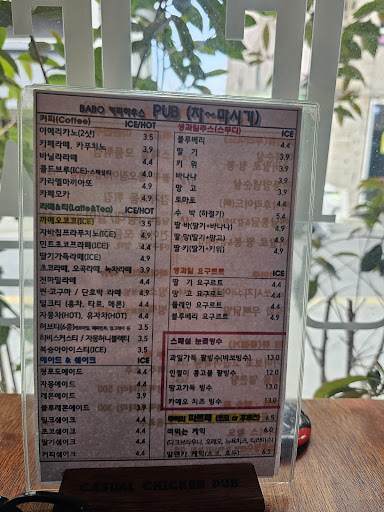 BABO 커피하우스 PUB (차~마시기)
커피(Coffee) ICE/HOT
아메리카노(2샷) 3.5
카페라떼, 카푸치노 3.9
바닐라라떼 4.4
콜드브루(ICE)-스페셜티 4.4
카라멜마키아또 4.9
카페모카 4.9
라떼&티(Latte&Tea) ICE/HOT
까페오코코(ICE) 3.5
자바칩프라푸치노(ICE) 4.9
민트초코프라페(ICE) 4.4
딸기가득라떼(ICE) 4.9
초코라떼, 오곡라떼, 녹차라떼 3.9
전마밀라떼 4.4
찐고구마 / 단호박 라떼 4.9
밀크티 (홍차, 타로, 메론) 4.4
자몽차(HOT), 유자차(HOT) 4.4
허브티(6종)
히비스커스티 / 자몽허니블랙티 3.5
복숭아아이스티(ICE) 3.5
에이드 & 쉐이크 ICE
청포도에이드 4.4
자몽에이드 4.4
레몬에이드 3.9
블루레몬에이드 3.9
밀크쉐이크 4.4
초코쉐이크 4.4
딸기쉐이크 4.4
커피쉐이크 4.4
생과일쥬스(스무디) ICE
블루베리 4.4
딸 기 4.9
키 위 3.9
바나나 3.9
망 고 4.9
토마토 4.4
수 박 (하절기) 5.4
딸바(딸기+바나나) 4.9
딸 망(딸기+망고) 4.9
딸 키(딸기+키위) 4.9
생과일 요구르트 ICE
딸 기 요구르트 4.4
망 고 요구르트 4.4
플레인 요구르트 4.4
블루베리 요구르트 4.9
스페셜 눈꽃빙수
과일가득 팥빙수(바보빙수) 13.0
인절미 콩고물 팥빙수 12.0
망고가득 빙수 13.0
카페오 치즈 빙수 13.0
파르페 6.5
떠먹는 케익 6.0
(티그브라우니, 오레오, 뉴욕치즈, 티라미수)
6.5
CASUAL CHICKEN PUB